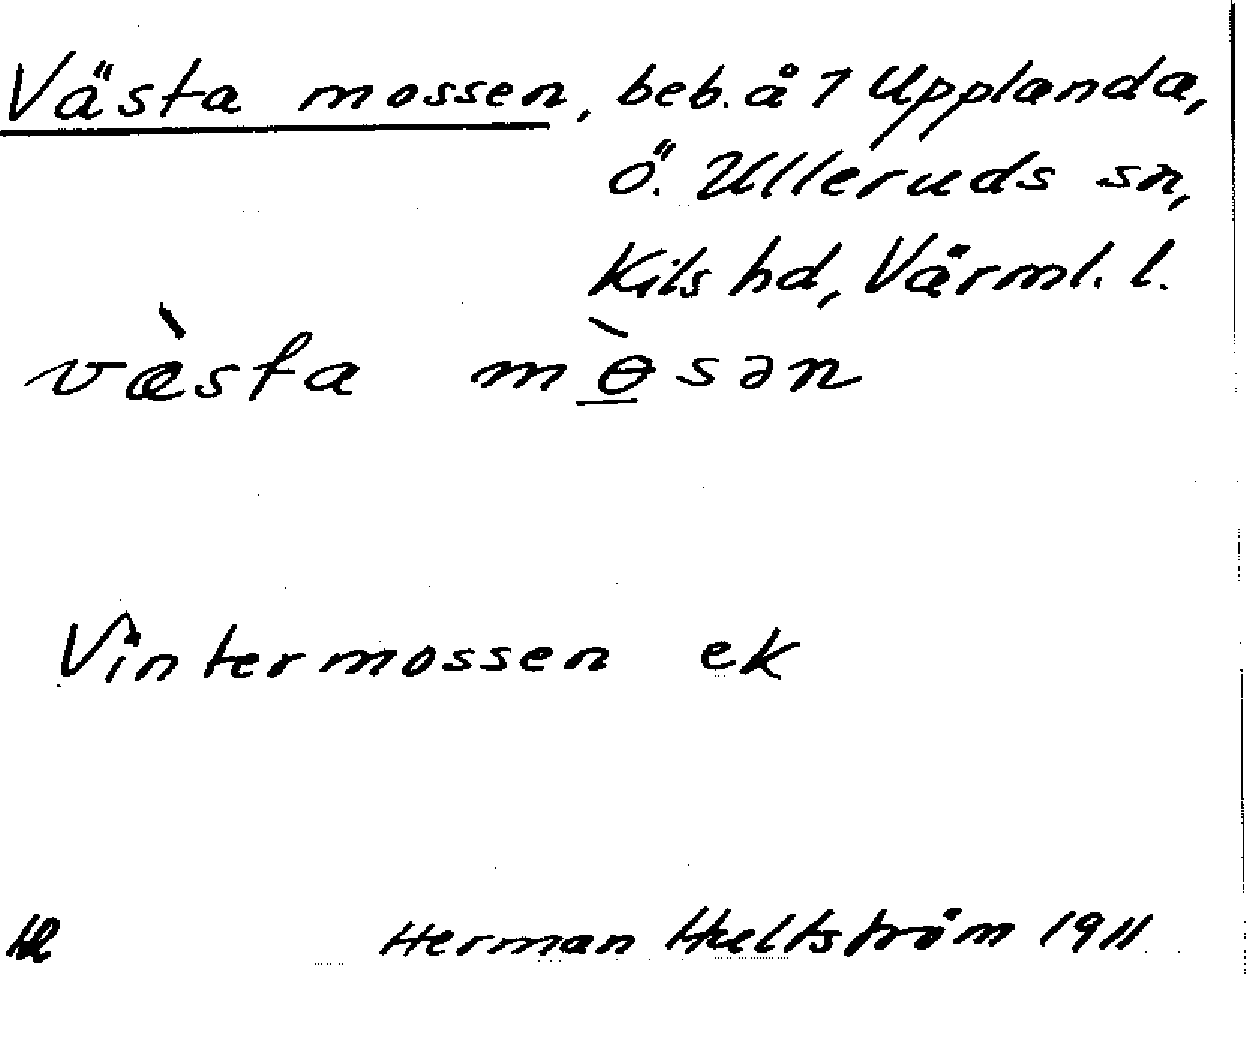 Västa mossen, beb. å 1 Upplanda,
Ö. Ulleruds sn,
Kils hd, Värml. l.
væ̀sta mɵ̱̀sən
Vintermossen ek
Herman Hultström 1911